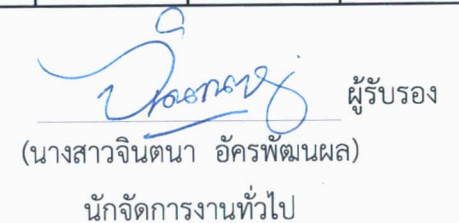 ผู้รับรอง
(นางสาวจินตนา อัครพัฒนผล)
นักจัดการงานทั่วไป